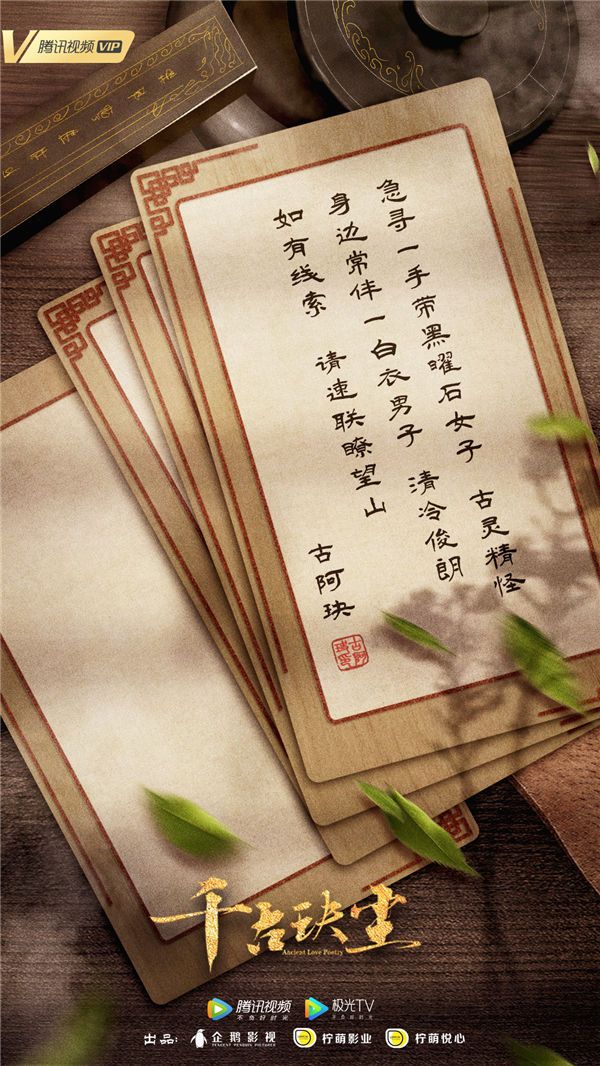 腾讯视频 VIP
急寻一手带黑曜石女子 古灵精怪
身边常伴一白衣男子 清冷俊朗
如有线索 请速联瞭望山
古阿玦
千古玦尘
Ancient Love Poetry
腾讯视频 极光TV
不负好时光
出品: 企鹅影视 柠萌影业 柠萌悦心
TENCENT PENGUIN PICTURES